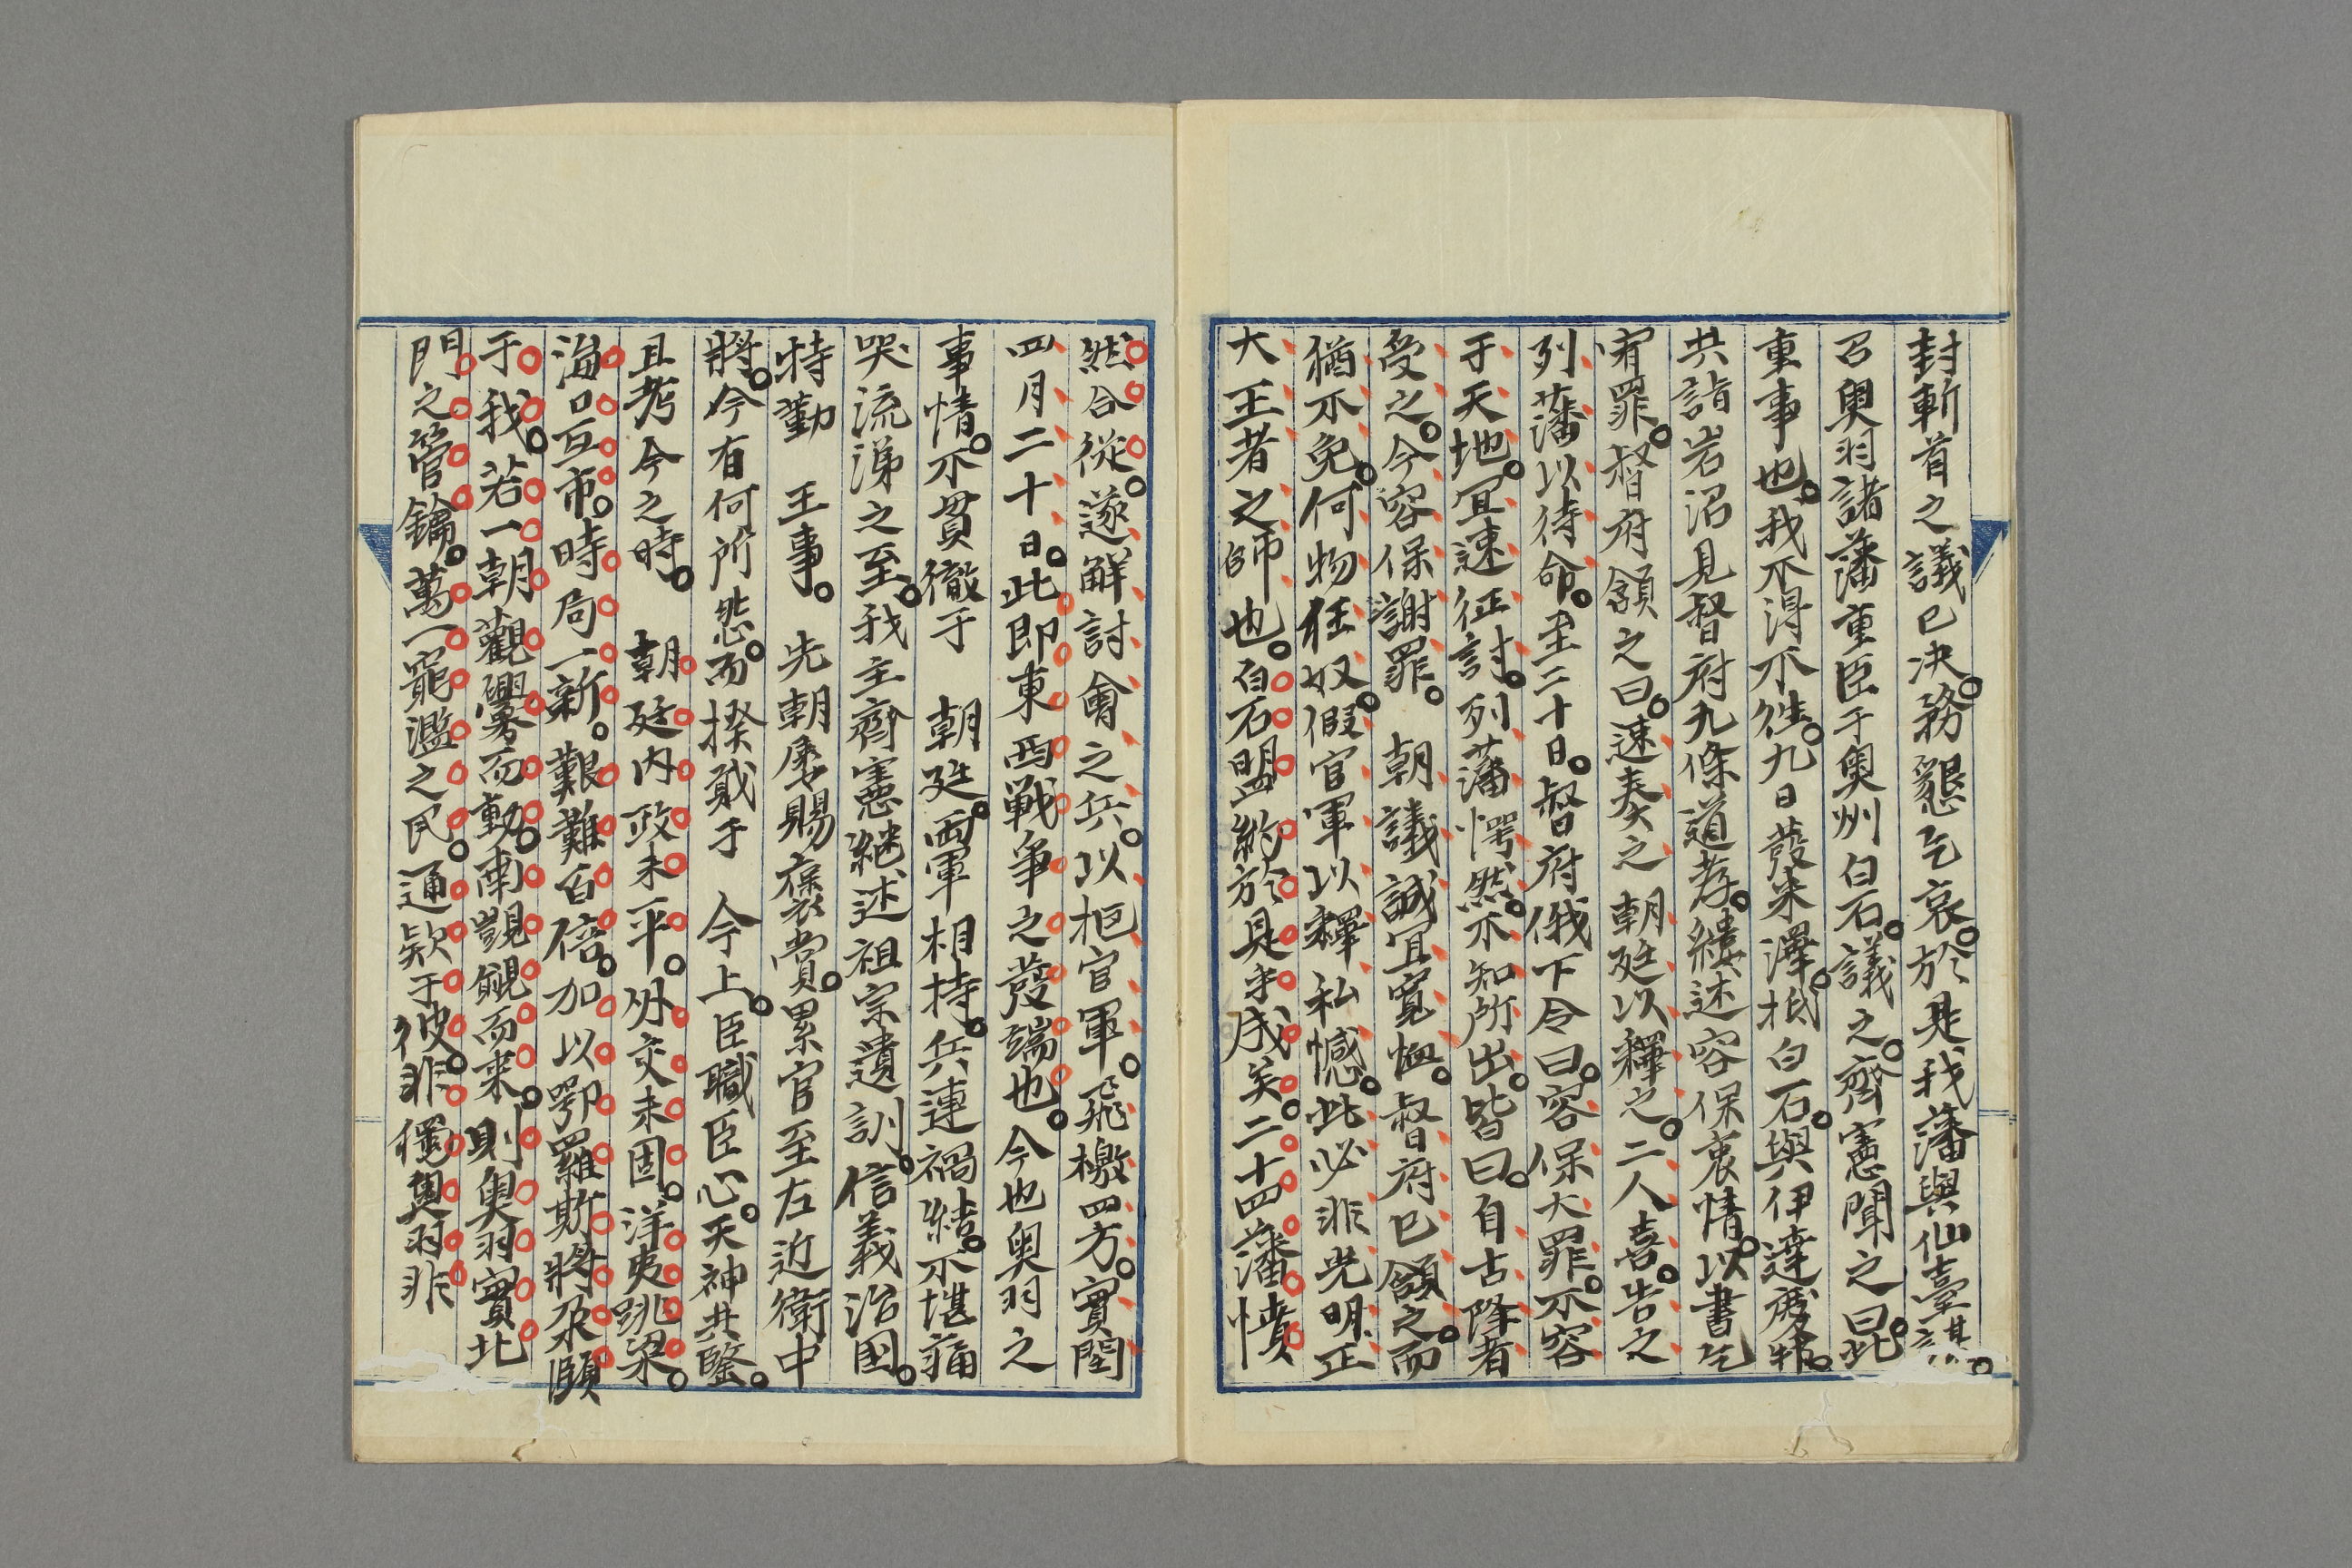 封斬首之議已決。務懇乞哀。於是我藩與仙臺謀。
召奧羽諸藩重臣于奧州白石。議之。齊憲聞之曰。此
重事也。我不得不徃。九日發米澤。抵白石。與伊達慶邦。
共詣岩沼見督府九條道孝。縷述容保衷情。以書乞
宥罪。督府頷之曰。速奏之 朝廷以釋之。二人喜。告之
列藩以待命。至二十日。督府俄下令曰。容保大罪。不容
于天地。宜速征討。列藩愕然。不知所出。皆曰。自古降者
受之。今容保謝罪。 朝議誠宜寬恤。督府已頷之。而
猶不免。何物狂奴。假官軍以釋私憾。此必非光明正
大王者之師也。白石盟約於是乎成矣。二十四藩憤
然合從。遂解討會之兵。以拒官軍。飛檄四方。實閏
四月二十日。此即東西戰爭之發端也。今也奧羽之
事情。不貫徹于 朝廷。兩軍相持。兵連禍結。不堪痛
哭流涕之至。我主齊憲継述祖宗遺訓。信義治國。
特勤 王事。 先朝屡賜褒賞。累官至左近衛中
將。今有何所怨。而揆戴于 今上。臣職臣心。天神共鑒。
且考今之時。 朝廷內政未平。外交未固。洋夷跳梁。
海口互市。時局一新。艱難百倍。加以鄂羅斯將朶頤
于我。若一朝觀釁而動。南覬覦而来。則奧羽實北
門之管鑰。萬一竄濫之民。通欵于彼。非獨奧羽非